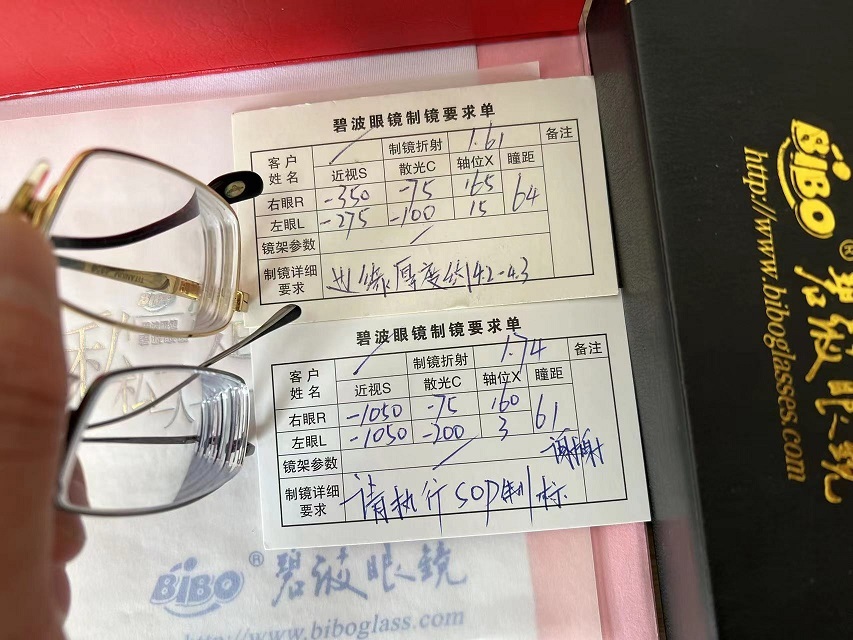 碧波眼镜制镜要求单
客户姓名 制镜折射 1.61 备注
近视S 散光C 轴位X 瞳距
右眼R -350 -75 165 64
左眼L -275 -100 15
镜架参数
制镜详细要求 边缘厚度 4.2-4.3
碧波眼镜制镜要求单
客户姓名 制镜折射 1.74 备注
近视S 散光C 轴位X 瞳距
右眼R -1050 -75 160 61
左眼L -1050 -200 3
镜架参数 谢谢
制镜详细要求 请执行SOP制标
BiBO® 碧波眼镜
http://www.biboglass.com
BiBO®碧波眼镜
http://www.biboglasses.com
BiBO
碧波眼镜